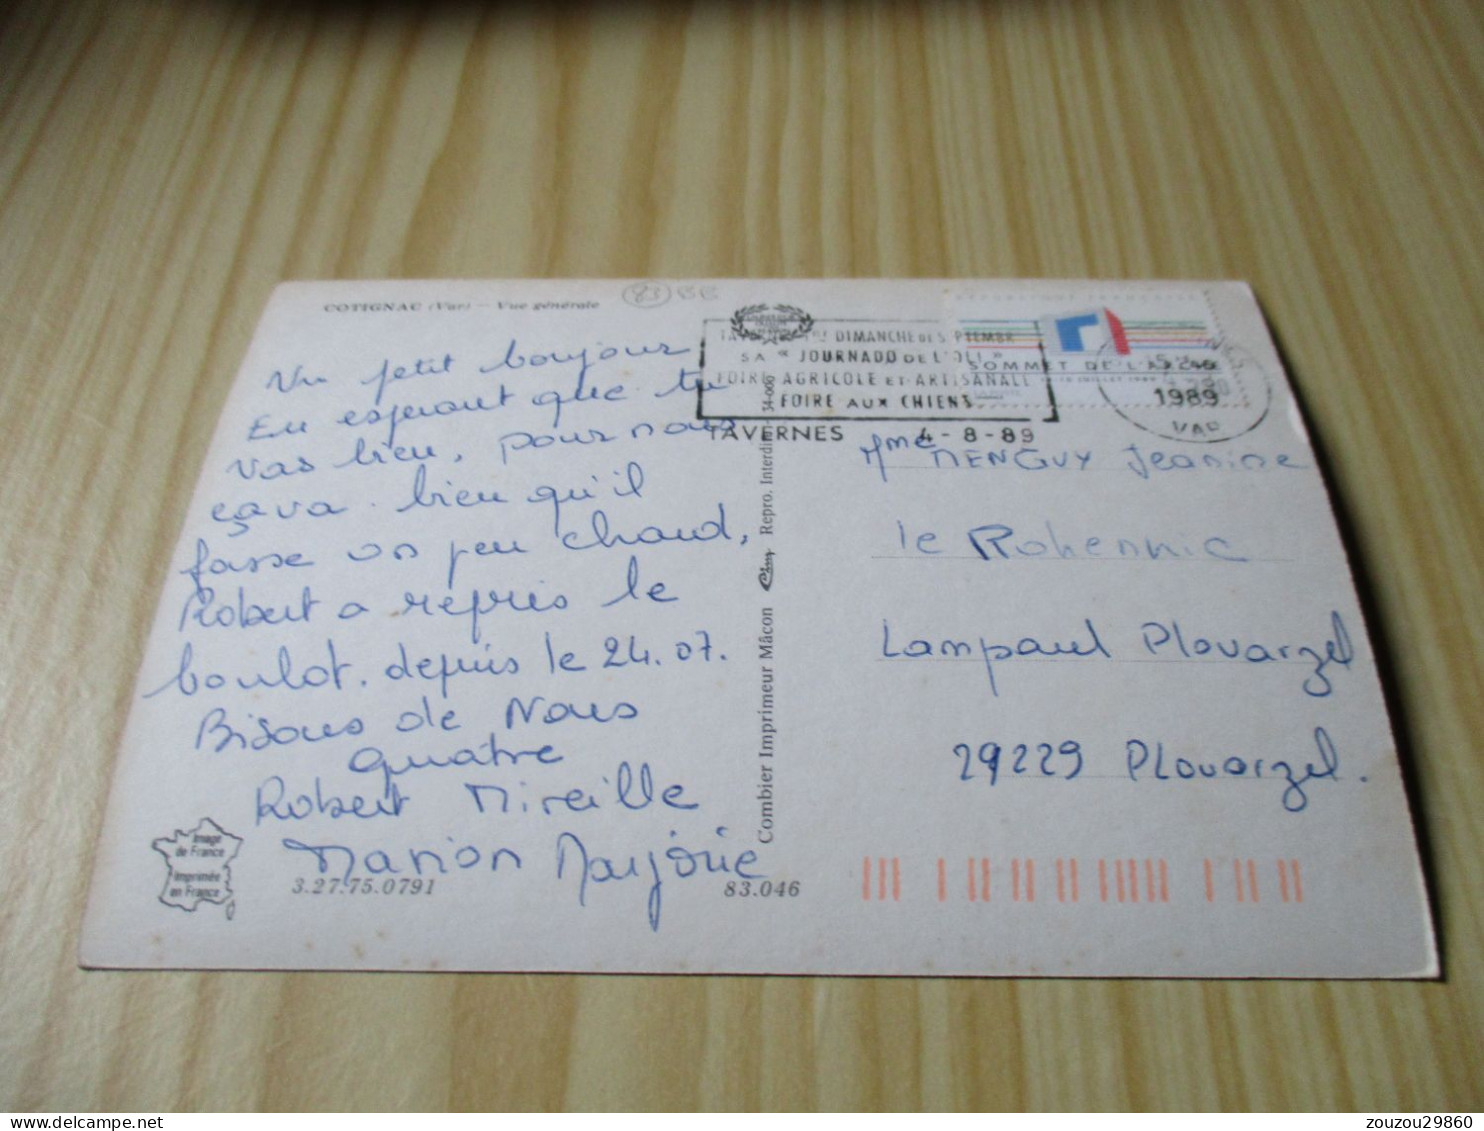 COTIGNAC (Var) – Vue générale
83 BB
Un petit bonjour
En esperant que tu
vas bien, pour nous
ça va. bien qu'il
fasse un peu chaud,
Robert a repris le
boulot. depuis le 24.07.
Bisous de Nous
quatre
Robert Mireille
Marion Marjorie
Image
de France
Imprimée
en France
3.27.75.0791
83.046
Combier Imprimeur Mâcon
Repro. Interdite
34-000
DIMANCHE DE SEPTEMBR
SA " JOURNADO DE L'OLI "
FOIRE AGRICOLE ET ARTISANALE
FOIRE AUX CHIENS
TAVERNES 4-8-89
REPUBLIQUE FRANÇAISE
SOMMET DE L'ARCHE
1989
VAR
Mme MENGUY Jeanine
le Rohennic
Lampaul Plouarzel
29229 Plouarzel.
zouzou29860